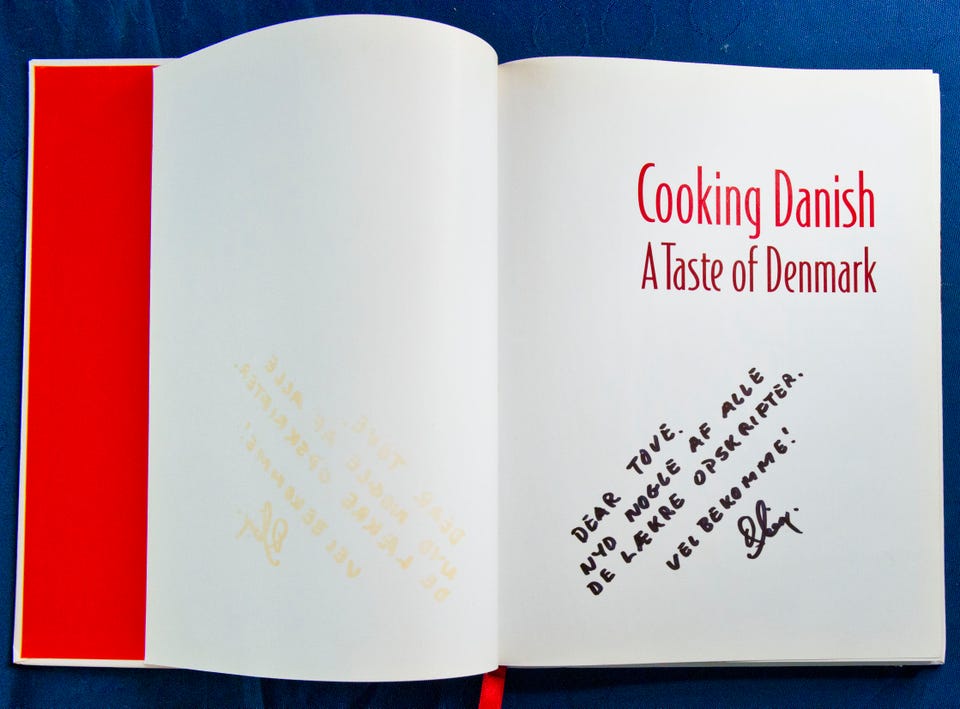 Cooking Danish
A Taste of Denmark
DEAR TOVE.
NYD NOGLE AF ALLE
DE LÆKRE OPSKRIFTER.
VELBEKOMME!